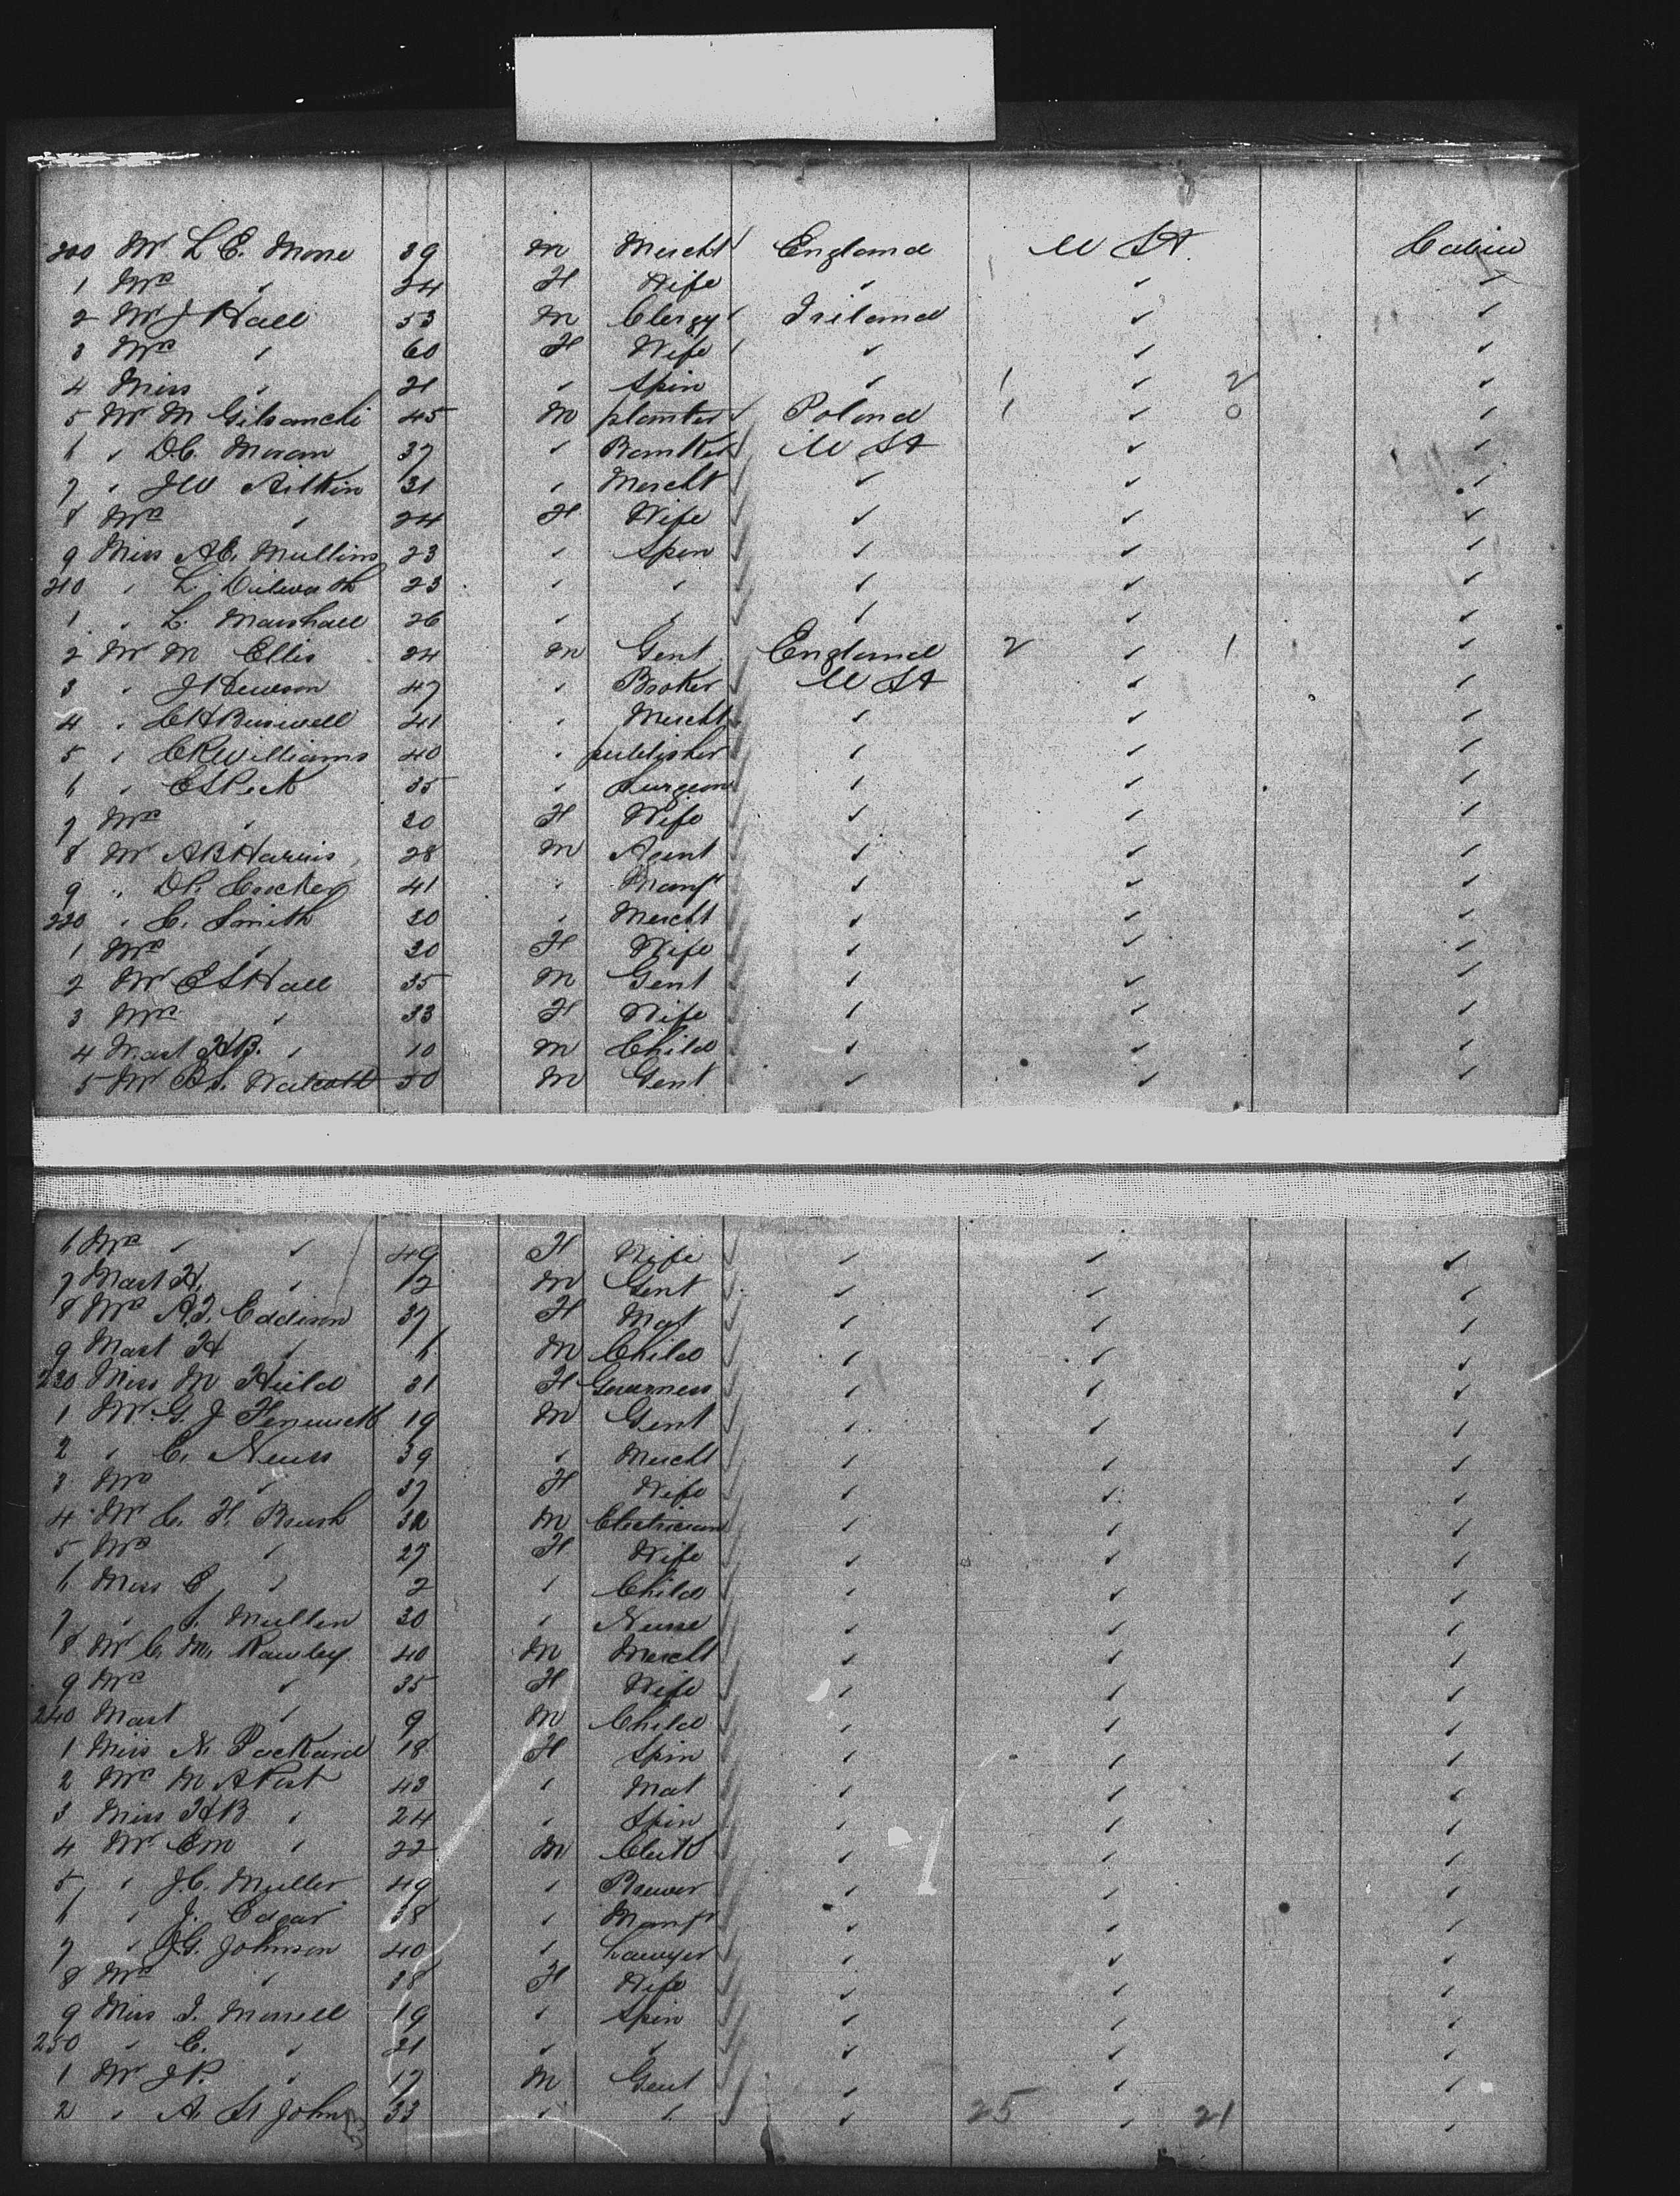 200 Mr L E. Morse 39 M Mercht England U St. Cabin
1 Mrs ✓ 24 F Wife ✓ ✓ ✓
2 Mr J Hall 53 M Clergy Ireland ✓ ✓
3 Mrs ✓ 60 F Wife ✓ ✓ ✓
4 Miss ✓ 21 ✓ Spin ✓ 1 ✓ 2 ✓
5 Mr M 45 M planter Poland 1 ✓ 0 ✓
6 ✓ D.C. Moran 37 ✓ Banker U St ✓ ✓
7 ✓ J W Aitkin 31 ✓ Mercht ✓ ✓ ✓
8 Mrs ✓ 24 F Wife ✓ ✓ ✓
9 Miss A E. Mullins 23 ✓ Spin ✓ ✓ ✓
210 ✓ L. Dilworth 23 ✓ ✓ ✓ ✓ ✓
1 ✓ L. Marshall 26 ✓ ✓ ✓ ✓ ✓
2 Mr M Ellis 24 M Gent England 2 ✓ 1 ✓
3 ✓ J Hewson 47 ✓ Broker U St ✓ ✓
4 ✓ C H Buswell 41 ✓ Mercht ✓ ✓ ✓
5 ✓ C R Williams 40 ✓ publisher ✓ ✓ ✓
6 ✓ E S Peck 35 ✓ Surgeon ✓ ✓ ✓
7 Mrs ✓ 30 F Wife ✓ ✓ ✓
8 Mr A B Harris 28 M Agent ✓ ✓ ✓
9 ✓ D P. Crocker 41 ✓ Manfr ✓ ✓ ✓
220 ✓ C. Smith 30 ✓ Mercht ✓ ✓ ✓
1 Mrs ✓ 30 F Wife ✓ ✓ ✓
2 Mr E S Hall 35 M Gent ✓ ✓ ✓
3 Mrs ✓ 33 F Wife ✓ ✓ ✓
4 Mast H B. ✓ 10 M Child ✓ ✓ ✓
5 Mr B S. Walcott 50 M Gent ✓ ✓ ✓
6 Mrs ✓ ✓ 49 F Wife ✓ ✓ ✓
7 Mast H. ✓ 12 M Gent ✓ ✓ ✓
8 Mrs A. J. Eddison 37 F Mat ✓ ✓ ✓
9 Mast H ✓ 6 M Child ✓ ✓ ✓
230 Miss M Hield 31 F Governess ✓ ✓ ✓
1 Mr G. J 19 M Gent ✓ ✓ ✓
2 ✓ C. Neuss 39 ✓ Mercht ✓ ✓ ✓
3 Mrs ✓ 37 F Wife ✓ ✓ ✓
4 Mr C. F. Brush 32 M Electrician ✓ ✓ ✓
5 Mrs ✓ 27 F Wife ✓ ✓ ✓
6 Miss E ✓ 2 ✓ Child ✓ ✓ ✓
7 ✓ S. Mullen 30 ✓ Nurse ✓ ✓ ✓
8 Mr C. M. Rawley 40 M Mercht ✓ ✓ ✓
9 Mrs ✓ 35 F Wife ✓ ✓ ✓
240 Mast ✓ 9 M Child ✓ ✓ ✓
1 Miss N. Packard 18 F Spin ✓ ✓ ✓
2 Mrs M A Post 43 ✓ Mat ✓ ✓ ✓
3 Miss H B ✓ 24 ✓ Spin ✓ ✓ ✓
4 Mr E M ✓ 22 M Clerk ✓ ✓ ✓
5 ✓ J.C. Muller 49 ✓ Brewer ✓ ✓ ✓
6 ✓ J. Edgar 38 ✓ Manfr ✓ ✓ ✓
7 ✓ J G. Johnson 40 ✓ Lawyer ✓ ✓ ✓
8 Mrs ✓ 38 F Wife ✓ ✓ ✓
9 Miss I. Morrell 19 ✓ Spin ✓ ✓ ✓
250 ✓ C. ✓ 21 ✓ ✓ ✓ ✓ ✓
1 Mr J P. ✓ 17 M Gent ✓ ✓ ✓
2 ✓ A. St John 33 ✓ ✓ ✓ 25 ✓ 21 ✓